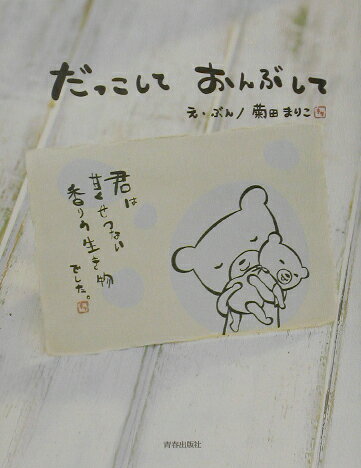 だっこして おんぶして
え・ぶん/菊田まりこ
君は
甘くせつない
香りの生き物
でした。
青春出版社